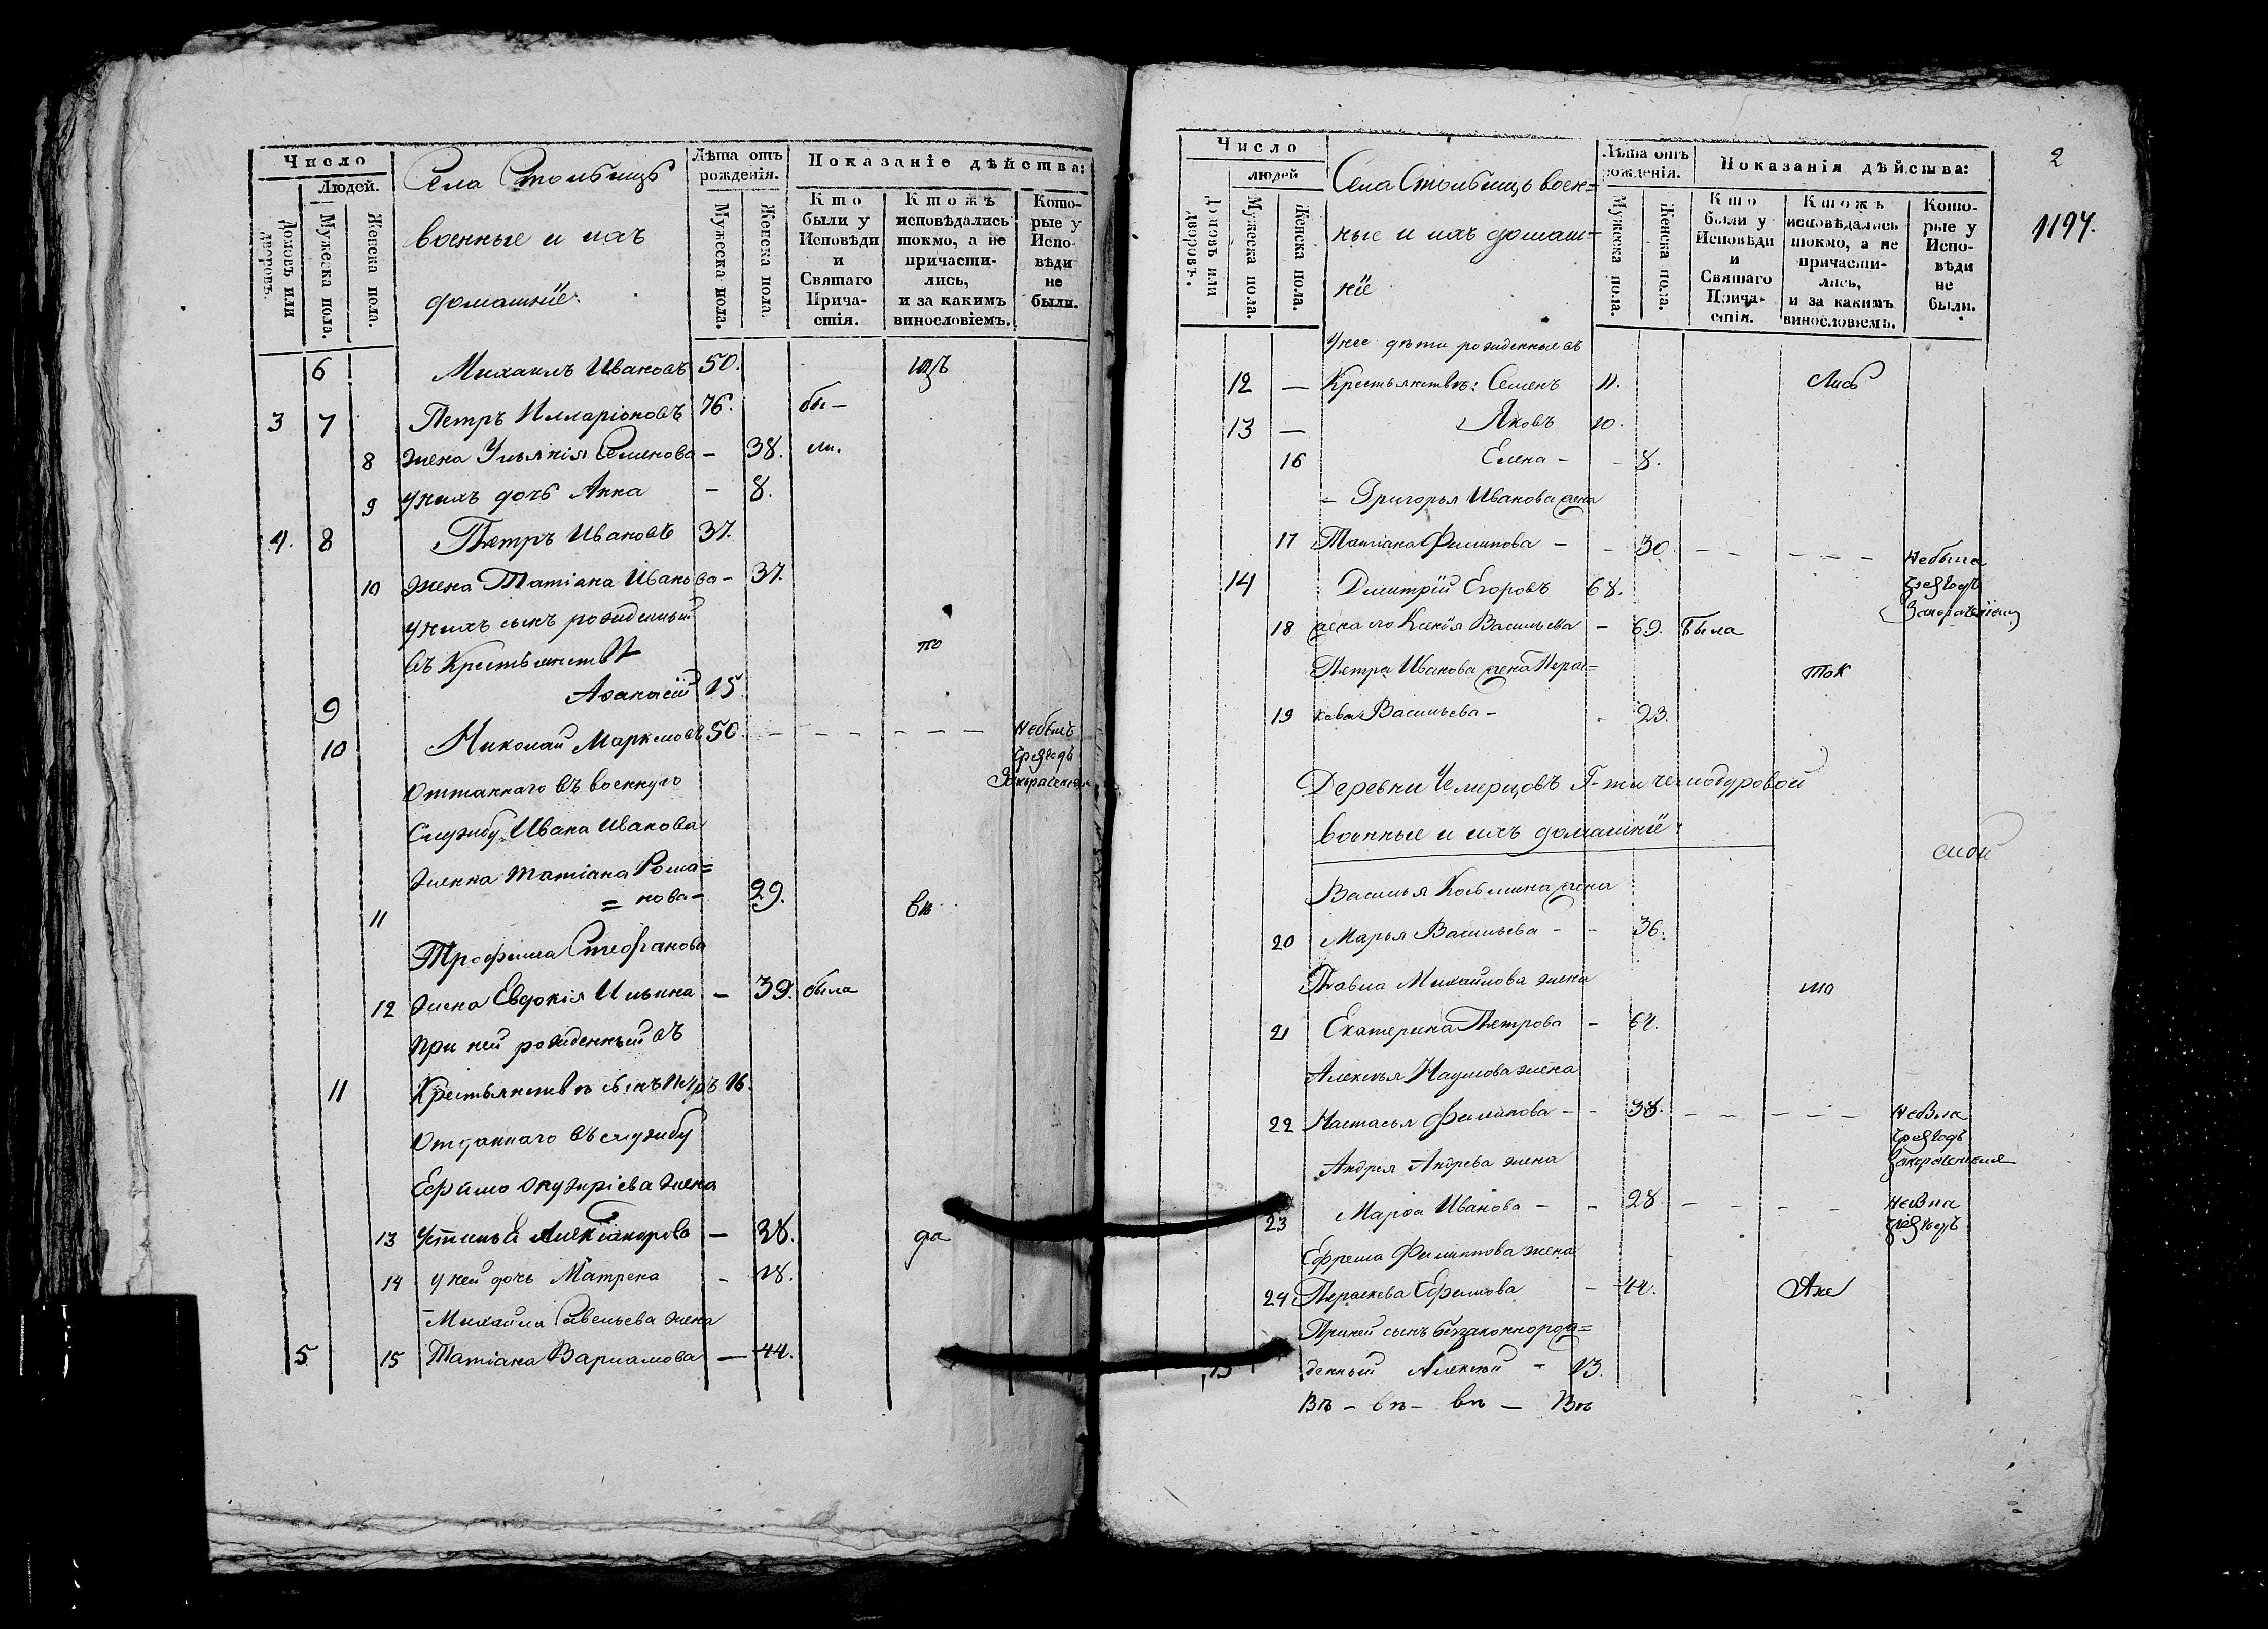 Число
Людей.
Домовъ или дворовъ.
Мужеска пола.
Женска пола.
Села Столбищъ
военные и ихъ
домашніе.
Лѣта отъ рожденія.
Мужеска пола.
Женска пола.
Показаніе дѣйства:
Кто были у Исповѣди и Святаго Прича-стія.
Ктожъ исповѣдались токмо, а не причасти-лись, и за какимъ винословіемъ.
Кото-рые у Испо-вѣди не были.
6 Михаилъ Ивановъ 50.
3 7 Петръ Илларіоновъ 76. бы-
8 жена Ульянія Семенова - 38. ли.
9 у нихъ дочь Анна - 8.
4. 8 Петръ Ивановъ 37.
10 жена Татіана Иванова - 37.
у нихъ сынъ рожденный
въ Крестьянствѣ то
9 Аѳанасій 15.
10 Николай 50. - - - - - небылъ
Оттаннаго въ военную
Службу Ивана Иванова
женка Татіана Рома=
11 = нова - 29. вѣ
Трофима Стефанова
12 жена Евдокія Ильина - 39. была
при ней рожденный въ
11 Крестьянствѣ сынъ Петръ 16.
Отданнаго въ службу
жена
13 - 38. да
14 у ней дочь Матрена - 18.
Михайла Савельева жена
5 15 Татіана Варламова - 44.
2
1194.
Число
людей
Домовъ или дворовъ.
Мужеска пола.
Женска пола.
Села Столбищъ воен=
ные и ихъ домаш=
ніе
Лѣта отъ рожденія.
Мужеска пола.
Женска пола.
Показанія дѣйства:
Кто были у Исповѣди и Святаго Прича-стія.
Ктожъ исповѣдались токмо, а не причасти-лись, и за какимъ винословіемъ.
Кото-рые у Испо-вѣди не были.
У нее дѣти рожденные въ
12 - Крестьянствѣ: Семенъ 11. лись
13 - Яковъ 10.
16 Елена - - 8.
- Григорья Иванова жена
17 Татіана Филипова - - 30. - - - - - небыла
14 Дмитрій Егоровъ 68.
18 жена его Ксенія Васильева - 69. Была
Петра Иванова жена Парас= ток
19 кова Васильева - 23.
Деревни Чемерцовъ Г-жи Чемодуровой
военные и ихъ домашніе.
Василья Козмина жена
20 Марья Васильева - - 36.
Павла Михайлова жена мо
21 Екатерина Петрова - 64.
Алексѣя Наумова жена
22 Настасья Филипова - - 38. - - - - -
Андрея Андрева жена
23 Марѳа Иванова - - 28 - - - -
Ефрема Филиппова жена
24 Параскева Ефимова - 44.
При ней сынъ беззаконнорож=
15 денный Алексѣй - 13.
Вѣ - вѣ - вѣ - Вѣ